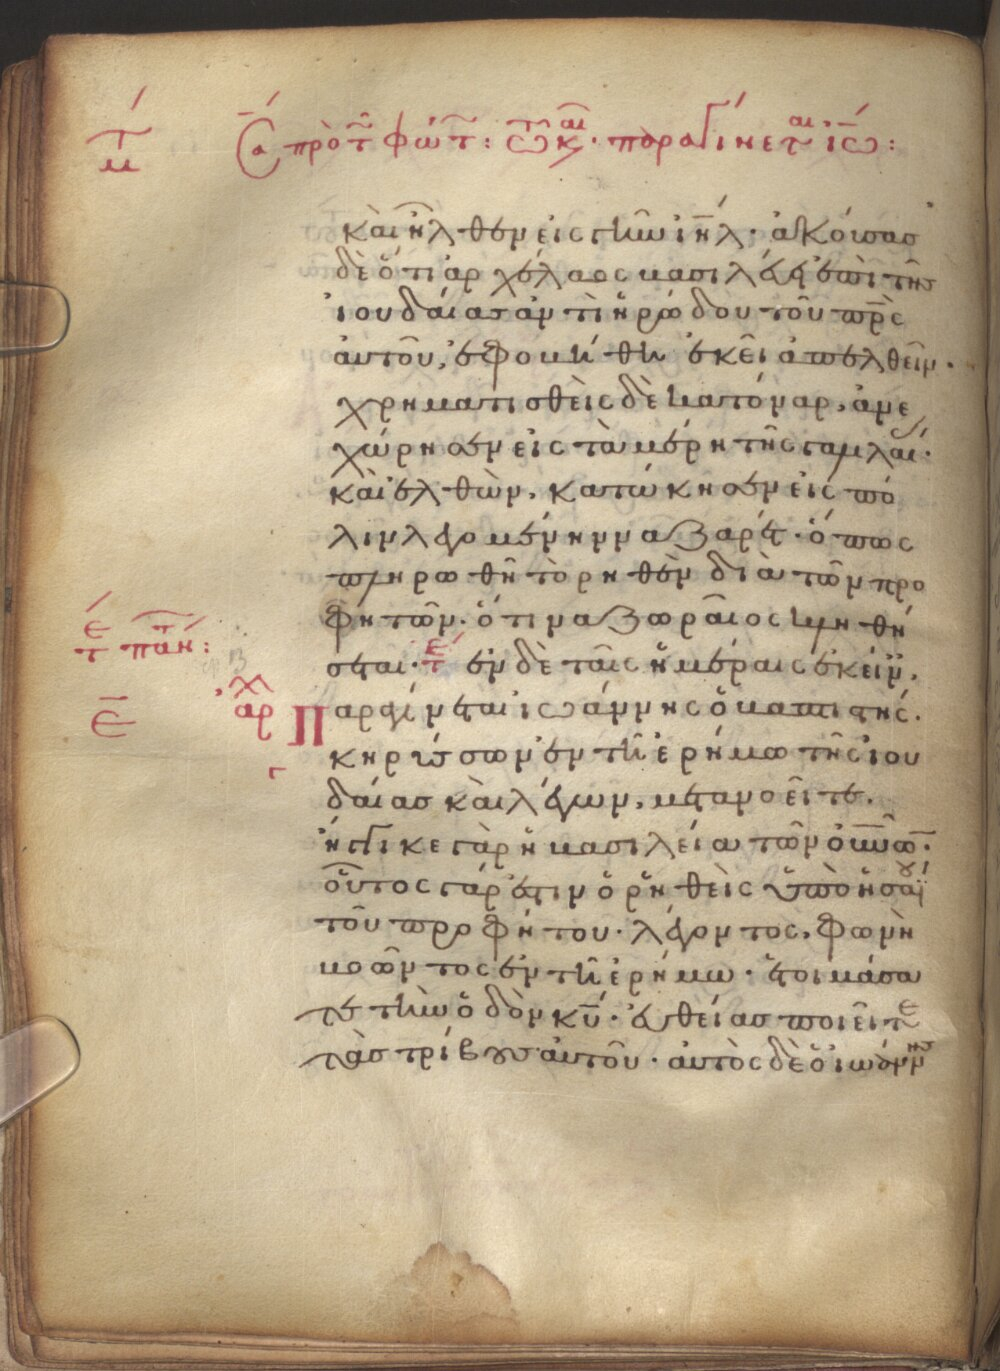 Σα πρὸ τ φώτ: τῶ κ αι. παραγίνεται ἰς ω:
καὶ ἦλθεν εἰς γῆν ἰηλ. ἀκούσας
δὲ ὅτι ἀρχέλαος βασιλεύει ἐπὶ τῆς
ἰουδαίας ἀντὶ ἡρώδου τοῦ πρς
αὐτοῦ, ἐφοβήθη ἐκεῖ ἀπελθεῖν.
χρηματισθεὶς δὲ κατόναρ, ἀνε
χώρησεν εἰς τὰ μέρη τῆς γαλλαί.
καὶ ἐλθὼν, κατώκησεν εἰς πό
λιν λεγομένην ναζαρέτ. ὅπως
πληρωθῆ τὸ ρηθὲν διὰ τῶν προ
φητῶν. ὅτι ναζωραῖος κληθή
σεται. ἐν δὲ ταῖς ἡμέραις ἐκείν,
Παραγίνεται ἰωάννης ὁ βαπτιστής.
κηρύσσων ἐν τῆ ἐρήμω τῆς ἰου
δαίας καὶ λέγων, μετανοεῖτε.
ἤγγικε γὰρ ἡ βασιλεία τῶν οὐνῶ.
οὗτος γάρ ἐστιν ὁ ῥηθεὶς ὑπὸ ἡσαΐου
τοῦ προφήτου. λέγοντος, φωνὴ
βοῶντος ἐν τῆ ἐρήμω. ἑτοιμάσα
τε τὴν ὁδὸν κυ. εὐθείας ποιεῖτε
τὰς τρίβους αὐτοῦ. αὐτὸς δὲ ὁ ἰωάννης